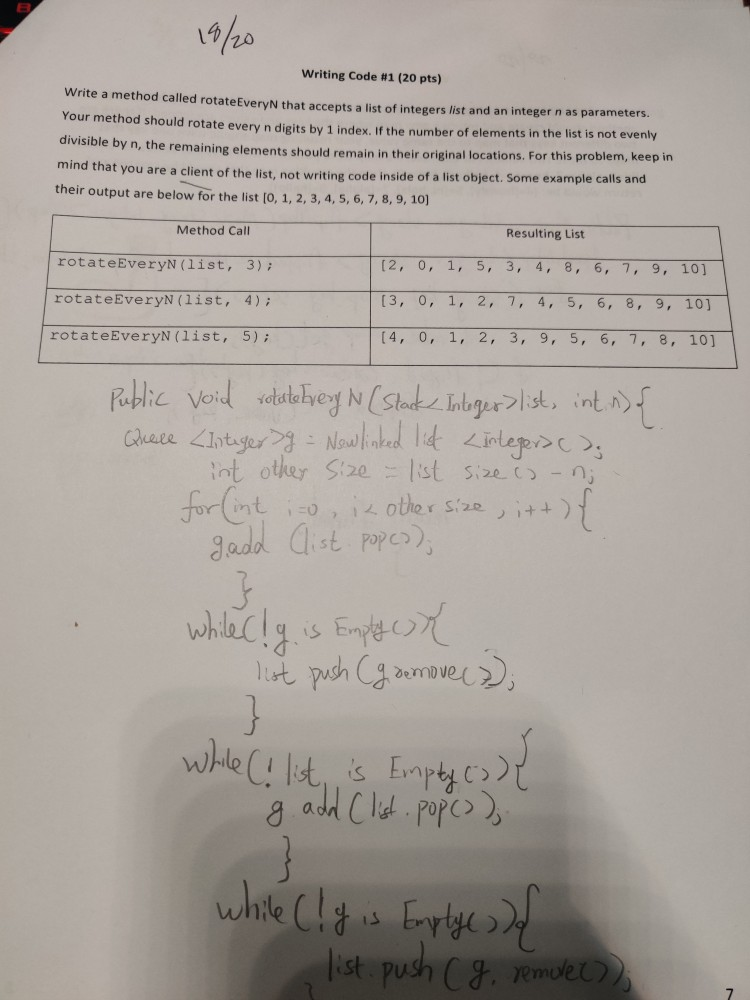 18/20
Writing Code #1 (20 pts)
Write a method called rotateEveryN that accepts a list of integers list and an integer n as parameters.
Your method should rotate every n digits by 1 index. If the number of elements in the list is not evenly
divisible by n, the remaining elements should remain in their original locations. For this problem, keep in
mind that you are a client of the list, not writing code inside of a list object. Some example calls and
their output are below for the list [0, 1, 2, 3, 4, 5, 6, 7, 8, 9, 10]
Method Call Resulting List
rotateEveryN(list, 3); [2, 0, 1, 5, 3, 4, 8, 6, 7, 9, 10]
rotateEveryN(list, 4); [3, 0, 1, 2, 7, 4, 5, 6, 8, 9, 10]
rotateEveryN(list, 5); [4, 0, 1, 2, 3, 9, 5, 6, 7, 8, 10]
Public void rotateEvery N (Stack<Integer>list, int n){
<Integer>g = New linked list <integer>();
int other Size = list size () - n;
for(int i=0, i< other size, i++){
g.add (list.pop());
}
while(!g. is Empty()){
list push (g.remove());
}
while(! list, is Empty()){
g add (list.pop());
}
while(!g is Empty()){
list.push (g. remove());
}
7